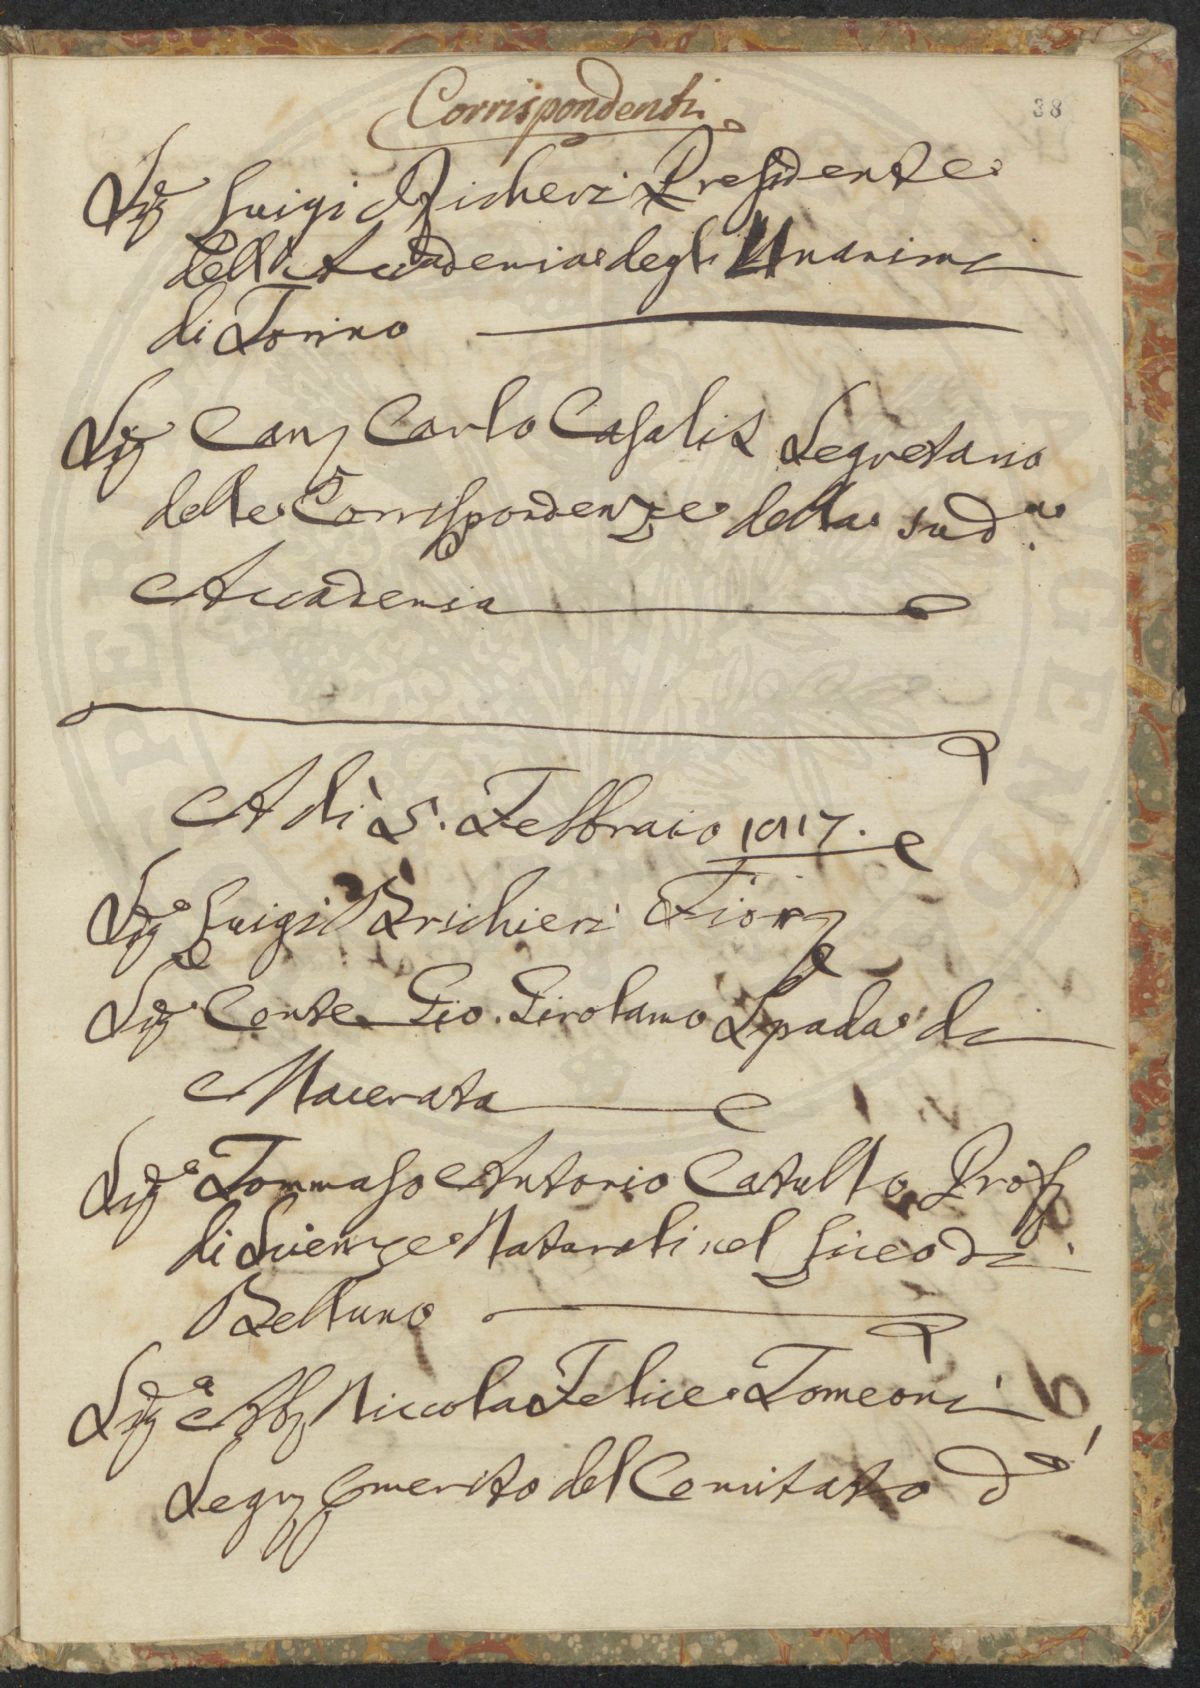 Corrispondenti
38
Sig.e Luigi Richeri Presidente
dell'Accademia degli Unanimi
di Torino
Sig Can. Carlo Casalis Segretario
delle Corrispondenze della sud.a
Accademia
A dì 5. Febbraio 1817.
Sig.e Luigi Brichieri
Sig.e Conte Gio. Girolamo Spada di
Macerata
Sig.e Tommaso Antonio Catullo Prof.
di Scienze Naturali nel Liceo di
Belluno
Sig.e Ab. Niccola Felice Tomeoni
Segr. Emerito del Comitato d'